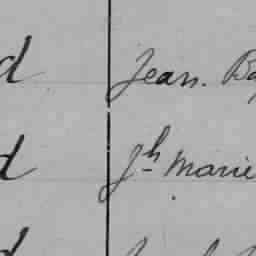 d Jean. Ba
d Jh Marie
d